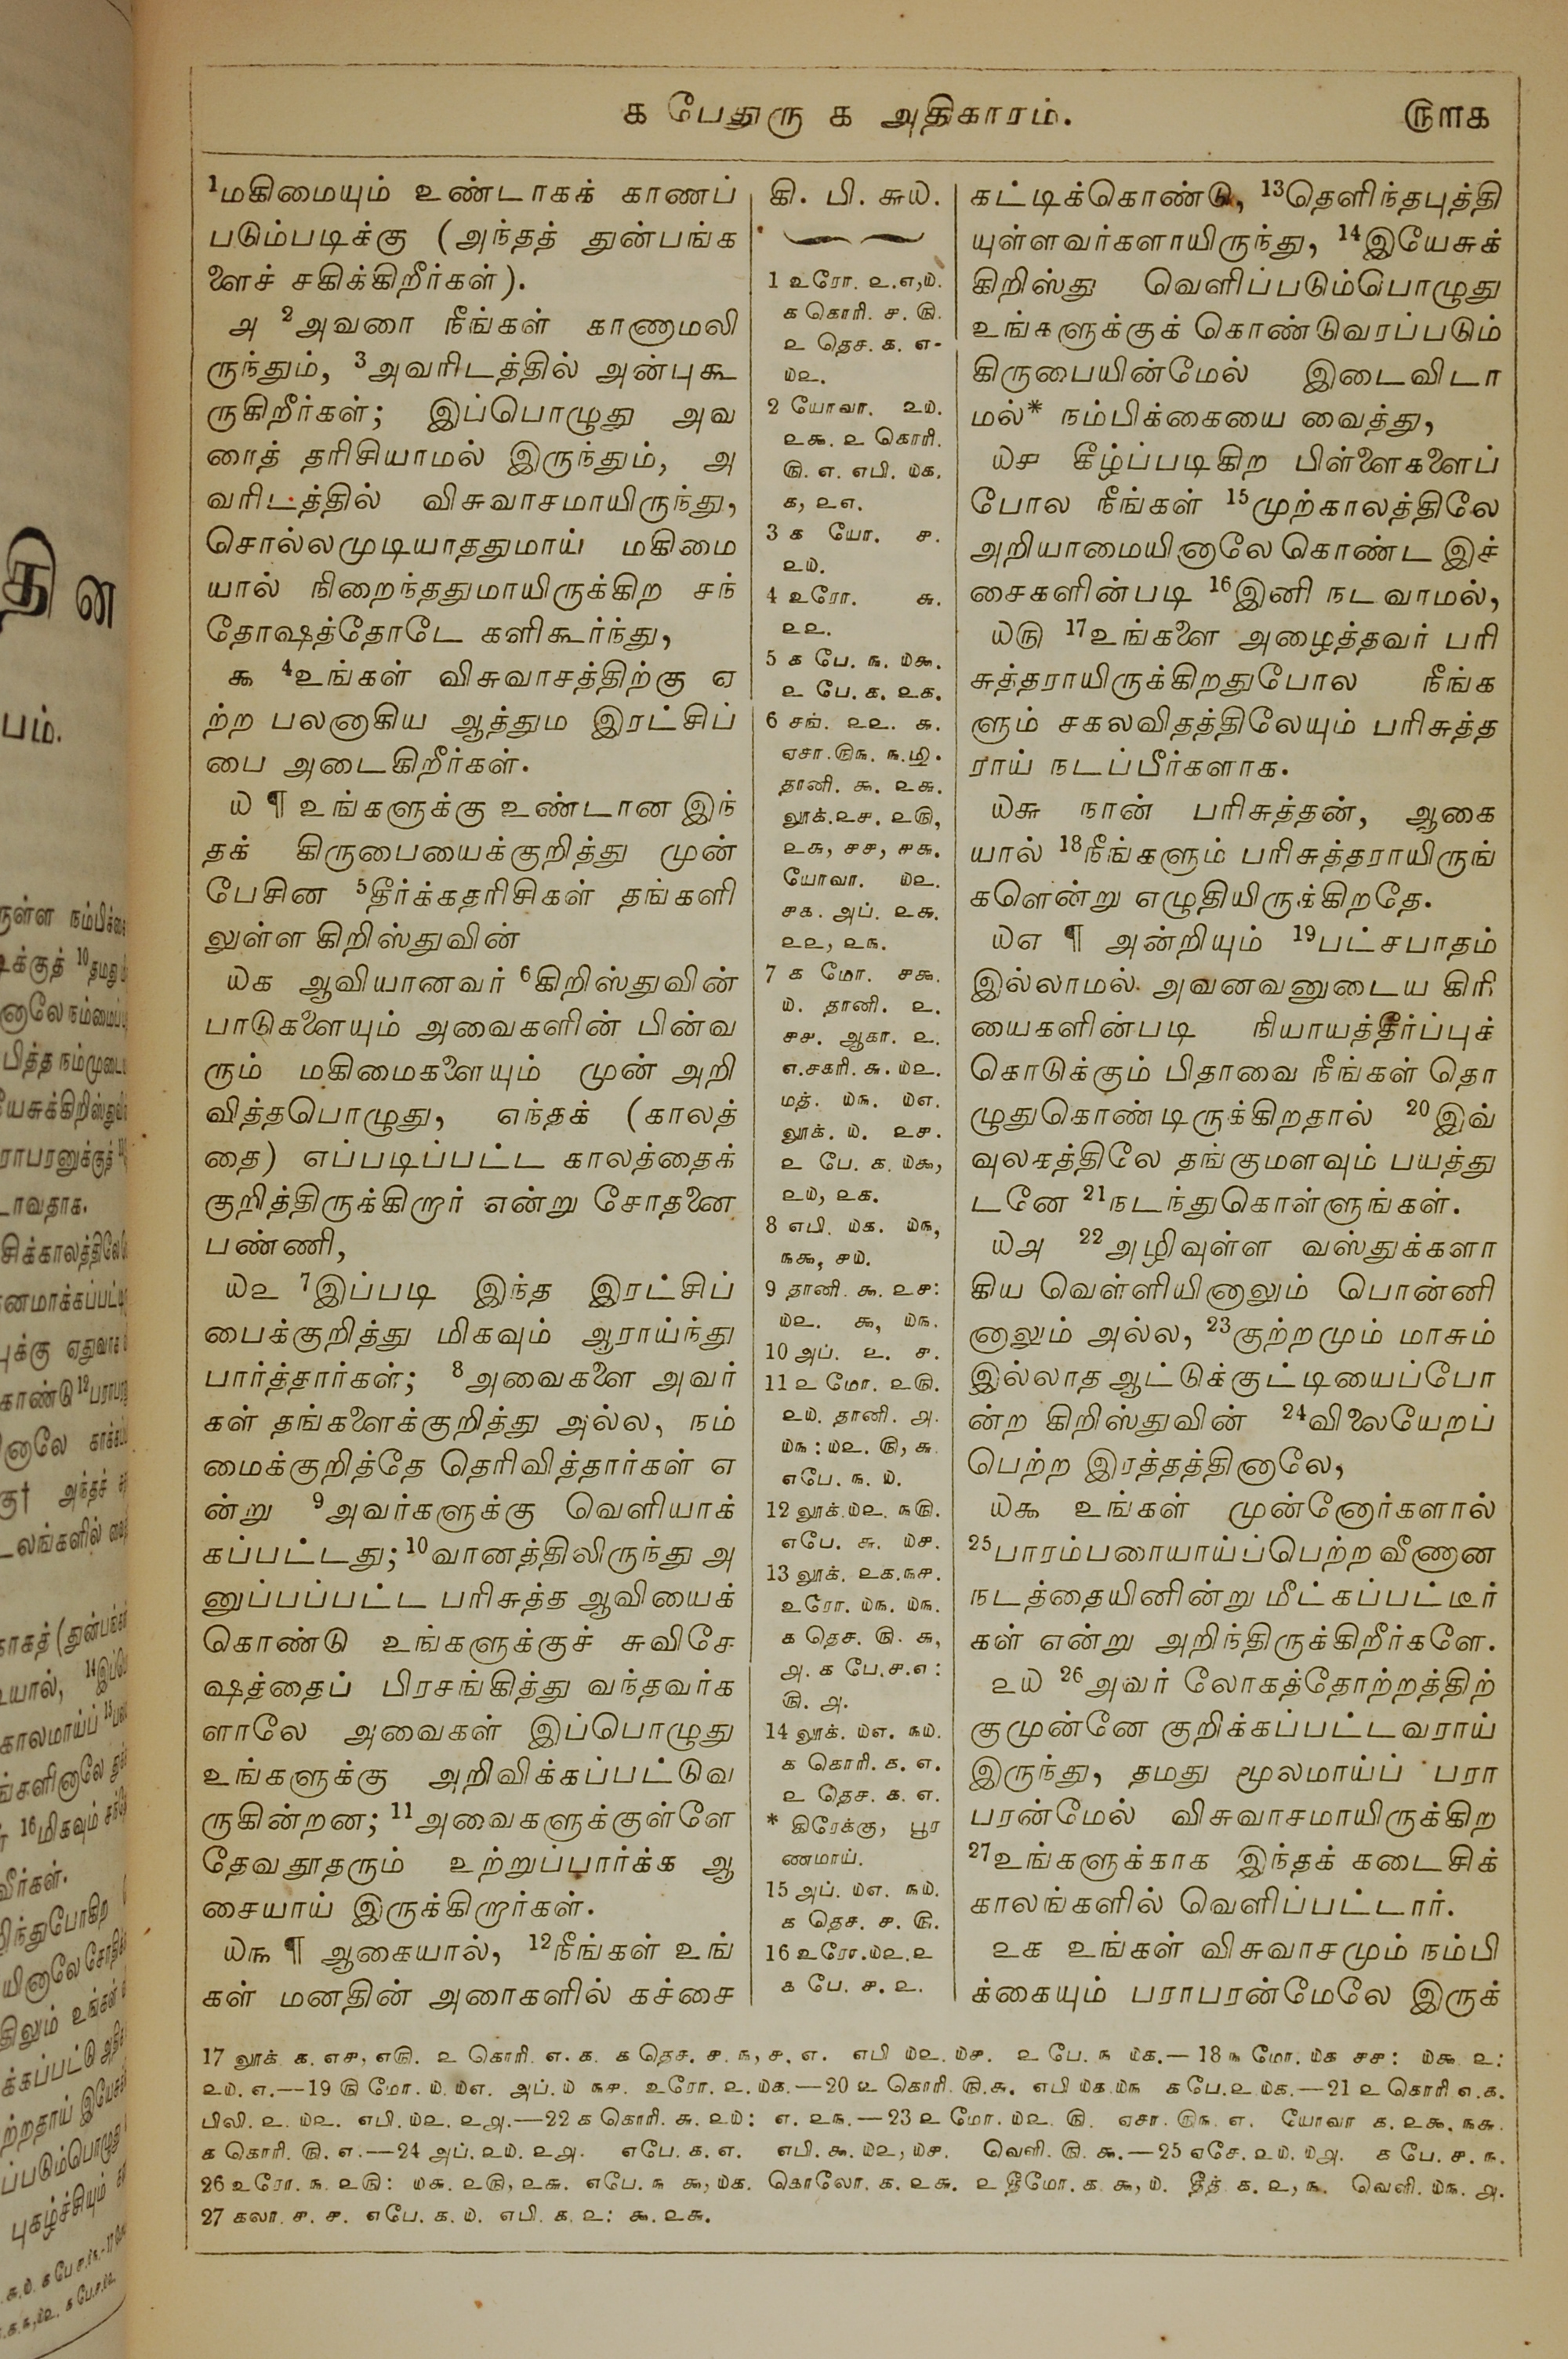 ௧ பேதுரு ௧ அதிகாரம். ௫௱௧
1மகிமையும் உண்டாகக் காணப்
படும்படிக்கு (அந்தத் துன்பங்க
ளைச் சகிக்கிறீர்கள்).
௮ 2அவரை நீங்கள் காணாமலி
ருந்தும், 3அவரிடத்தில் அன்புகூ
ருகிறீர்கள்; இப்பொழுது அவ
ரைத் தரிசியாமல் இருந்தும், அ
வரிடத்தில் விசுவாசமாயிருந்து,
சொல்லமுடியாததுமாய் மகிமை
யால் நிறைந்ததுமாயிருக்கிற சந்
தோஷத்தோடே களிகூர்ந்து,
௯ 4உங்கள் விசுவாசத்திற்கு ஏ
ற்ற பலனாகிய ஆத்தும இரட்சிப்
பை அடைகிறீர்கள்.
௰ ¶ உங்களுக்கு உண்டான இந்
தக் கிருபையைக்குறித்து முன்
பேசின 5தீர்க்கதரிசிகள் தங்களி
லுள்ள கிறிஸ்துவின்
௰௧ ஆவியானவர் 6கிறிஸ்துவின்
பாடுகளையும் அவைகளின் பின்வ
ரும் மகிமைகளையும் முன் அறி
வித்தபொழுது, எந்தக் (காலத்
தை) எப்படிப்பட்ட காலத்தைக்
குறித்திருக்கிறார் என்று சோதனை
பண்ணி,
௰௨ 7இப்படி இந்த இரட்சிப்
பைக்குறித்து மிகவும் ஆராய்ந்து
பார்த்தார்கள்; 8அவைகளை அவர்
கள் தங்களைக்குறித்து அல்ல, நம்
மைக்குறித்தே தெரிவித்தார்கள் எ
ன்று 9அவர்களுக்கு வெளியாக்
கப்பட்டது; 10வானத்திலிருந்து அ
னுப்பப்பட்ட பரிசுத்த ஆவியைக்
கொண்டு உங்களுக்குச் சுவிசே
ஷத்தைப் பிரசங்கித்து வந்தவர்க
ளாலே அவைகள் இப்பொழுது
உங்களுக்கு அறிவிக்கப்பட்டுவ
ருகின்றன; 11அவைகளுக்குள்ளே
தேவதூதரும் உற்றுப்பார்க்க ஆ
சையாய் இருக்கிறார்கள்.
௰௩ ¶ ஆகையால், 12நீங்கள் உங்
கள் மனதின் அரைகளில் கச்சை
கி. பி. ௬௰.
1 உரோ. ௨.௭,௰.
௧ கொரி. ௪. ௫.
௨ தெச. ௧. ௭-
௰௨.
2 யோவா. ௨௰.
௨௯. ௨ கொரி.
௫. ௭. எபி. ௰௧.
௧, ௨௭.
3 ௧ யோ. ௪.
௨௰.
4 உரோ. ௬.
௨௨.
5 ௧ பே. ௩. ௰௯.
௨ பே. ௧. ௨௧.
6 சங். ௨௨. ௬.
ஏசா.௫௩. ௩.
தானி. ௯. ௨௬.
லூக்.௨௪. ௨௫,
௨௬, ௪௪, ௪௬.
யோவா. ௰௨.
௪௧. அப். ௨௬.
௨௨, ௨௩.
7 ௧ மோ. ௪௯.
௰. தானி. ௨.
௪௪. ஆகா. ௨.
௭.சகரி. ௬. ௰௨.
மத். ௰௩. ௰௭.
லூக். ௰. ௨௪.
௨ பே. ௧. ௰௯,
௨௰, ௨௧.
8 எபி. ௰௧. ௰௩,
௩௯, ௪௰.
9 தானி. ௯. ௨௪:
௰௨. ௯, ௰௩.
10 அப். ௨. ௪.
11 ௨ மோ. ௨௫.
௨௰. தானி. ௮.
௰௩: ௰௨. ௫, ௬.
எபே. ௩. ௰.
12 லூக்.௰௨. ௩௫.
எபே. ௬. ௰௪.
13 லூக். ௨௧.௩௪.
உரோ. ௰௩. ௰௩.
௧ தெச. ௫. ௬,
௮. ௧ பே.௪.௭:
௫. ௮.
14 லூக். ௰௭. ௩௰.
௧ கொரி. ௧. ௭.
௨ தெச. ௧. ௭.
* கிரேக்கு, பூர
ணமாய்.
15 அப். ௰௭. ௩௰.
௧ தெச. ௪. ௫.
16 உரோ.௰௨.௨
௧ பே. ௪. ௨.
கட்டிக்கொண்டு, 13தெளிந்தபுத்தி
யுள்ளவர்களாயிருந்து, 14இயேசுக்
கிறிஸ்து வெளிப்படும்பொழுது
உங்களுக்குக் கொண்டுவரப்படும்
கிருபையின்மேல் இடைவிடா
மல்* நம்பிக்கையை வைத்து,
௰௪ கீழ்ப்படிகிற பிள்ளைகளைப்
போல நீங்கள் 15முற்காலத்திலே
அறியாமையினாலே கொண்ட இச்
சைகளின்படி 16இனி நடவாமல்,
௰௫ 17உங்களை அழைத்தவர் பரி
சுத்தராயிருக்கிறதுபோல நீங்க
ளும் சகலவிதத்திலேயும் பரிசுத்த
ராய் நடப்பீர்களாக.
௰௬ நான் பரிசுத்தன், ஆகை
யால் 18நீங்களும் பரிசுத்தராயிருங்
களென்று எழுதியிருக்கிறதே.
௰௭ ¶ அன்றியும் 19பட்சபாதம்
இல்லாமல் அவனவனுடைய கிரி
யைகளின்படி நியாயத்தீர்ப்புக்
கொடுக்கும் பிதாவை நீங்கள் தொ
ழுதுகொண்டிருக்கிறதால் 20இவ்
வுலகத்திலே தங்குமளவும் பயத்து
டனே 21நடந்துகொள்ளுங்கள்.
௰௮ 22அழிவுள்ள வஸ்துக்களா
கிய வெள்ளியினாலும் பொன்னி
னாலும் அல்ல, 23குற்றமும் மாசும்
இல்லாத ஆட்டுக்குட்டியைப்போ
ன்ற கிறிஸ்துவின் 24விலையேறப்
பெற்ற இரத்தத்தினாலே,
௰௯ உங்கள் முன்னோர்களால்
25பாரம்பரையாய்ப்பெற்ற வீணான
நடத்தையினின்று மீட்கப்பட்டீர்
கள் என்று அறிந்திருக்கிறீர்களே.
௨௰ 26அவர் லோகத்தோற்றத்திற்
குமுன்னே குறிக்கப்பட்டவராய்
இருந்து, தமது மூலமாய்ப் பரா
பரன்மேல் விசுவாசமாயிருக்கிற
27உங்களுக்காக இந்தக் கடைசிக்
காலங்களில் வெளிப்பட்டார்.
௨௧ உங்கள் விசுவாசமும் நம்பி
க்கையும் பராபரன்மேலே இருக்
17 லூக். ௧. ௭௪, ௭௫. ௨ கொரி. ௭. ௧. ௧ தெச. ௪. ௩, ௪. ௭. எபி ௰௨. ௰௪. ௨ பே. ௩ ௰௧.—18 ௩ மோ. ௰௧ ௪௪: ௰௯ ௨:
௨௰. ௭.—19 ௫ மோ. ௰. ௰௭. அப். ௰ ௩௪. உரோ. ௨. ௰௧.—20 ௨ கொரி. ௫.௬. எபி ௰௧.௰௩ ௧ பே.௨ ௰௧.—21 ௨ கொரி ௭.௧.
பிலி. ௨. ௰௨. எபி. ௰௨. ௨௮.—22 ௧ கொரி. ௬. ௨௰: ௭. ௨௩.—23 ௨ மோ. ௰௨. ௫. ஏசா. ௫௩. ௭. யோவா ௧. ௨௯, ௩௬.
௧ கொரி. ௫. ௭.—24 அப். ௨௰. ௨௮. எபே. ௧. ௭. எபி. ௯. ௰௨, ௰௪. வெளி. ௫. ௯.—25 ஏசே. ௨௰. ௰௮. ௧ பே. ௪. ௩.
26 உரோ. ௩. ௨௫: ௰௬. ௨௫, ௨௬. எபே. ௩ ௯, ௰௧. கொலோ. ௧. ௨௬. ௨ தீமோ. ௧. ௯, ௰. தீத் ௧. ௨, ௩. வெளி. ௰௩. ௮.
27 கலா. ௪. ௪. எபே. ௧. ௰. எபி. ௧. ௨: ௯. ௨௬.